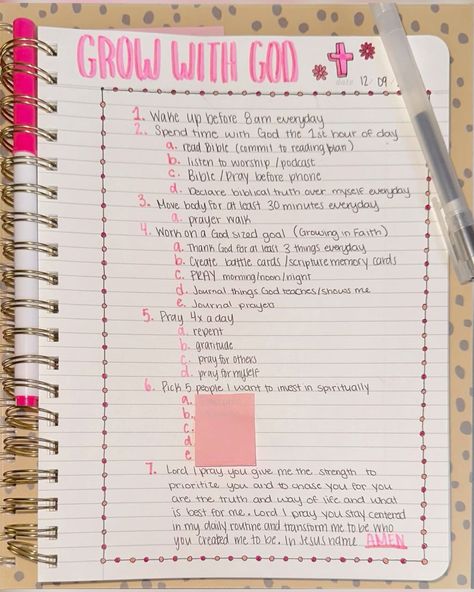 GROW WITH GOD
date 12/09/
1. Wake up before 8am everyday
2. Spend time with God the 1st hour of day
a. read Bible (commit to reading plan)
b. listen to worship/podcast
c. Bible/Pray before phone
d. Declare biblical truth over myself everyday
3. Move body for at least 30 minutes everyday
a. prayer walk
4. Work on a God sized goal (Growing in Faith)
a. Thank God for at least 3 things everyday
b. Create battle cards/scripture memory cards
c. PRAY morning/noon/night
d. Journal things God teaches/shows me
e. Journal prayers
5. Pray 4x a day
a. repent
b. gratitude
c. pray for others
d. pray for myself
6. Pick 5 people I want to invest in spiritually
a.
b.
c.
d
e
7. Lord I pray you give me the strength to
prioritize you and to chase you for you
are the truth and way of life and what
is best for me. Lord I pray you stay centered
in my daily routine and transform me to be who
you created me to be. In Jesus name AMEN